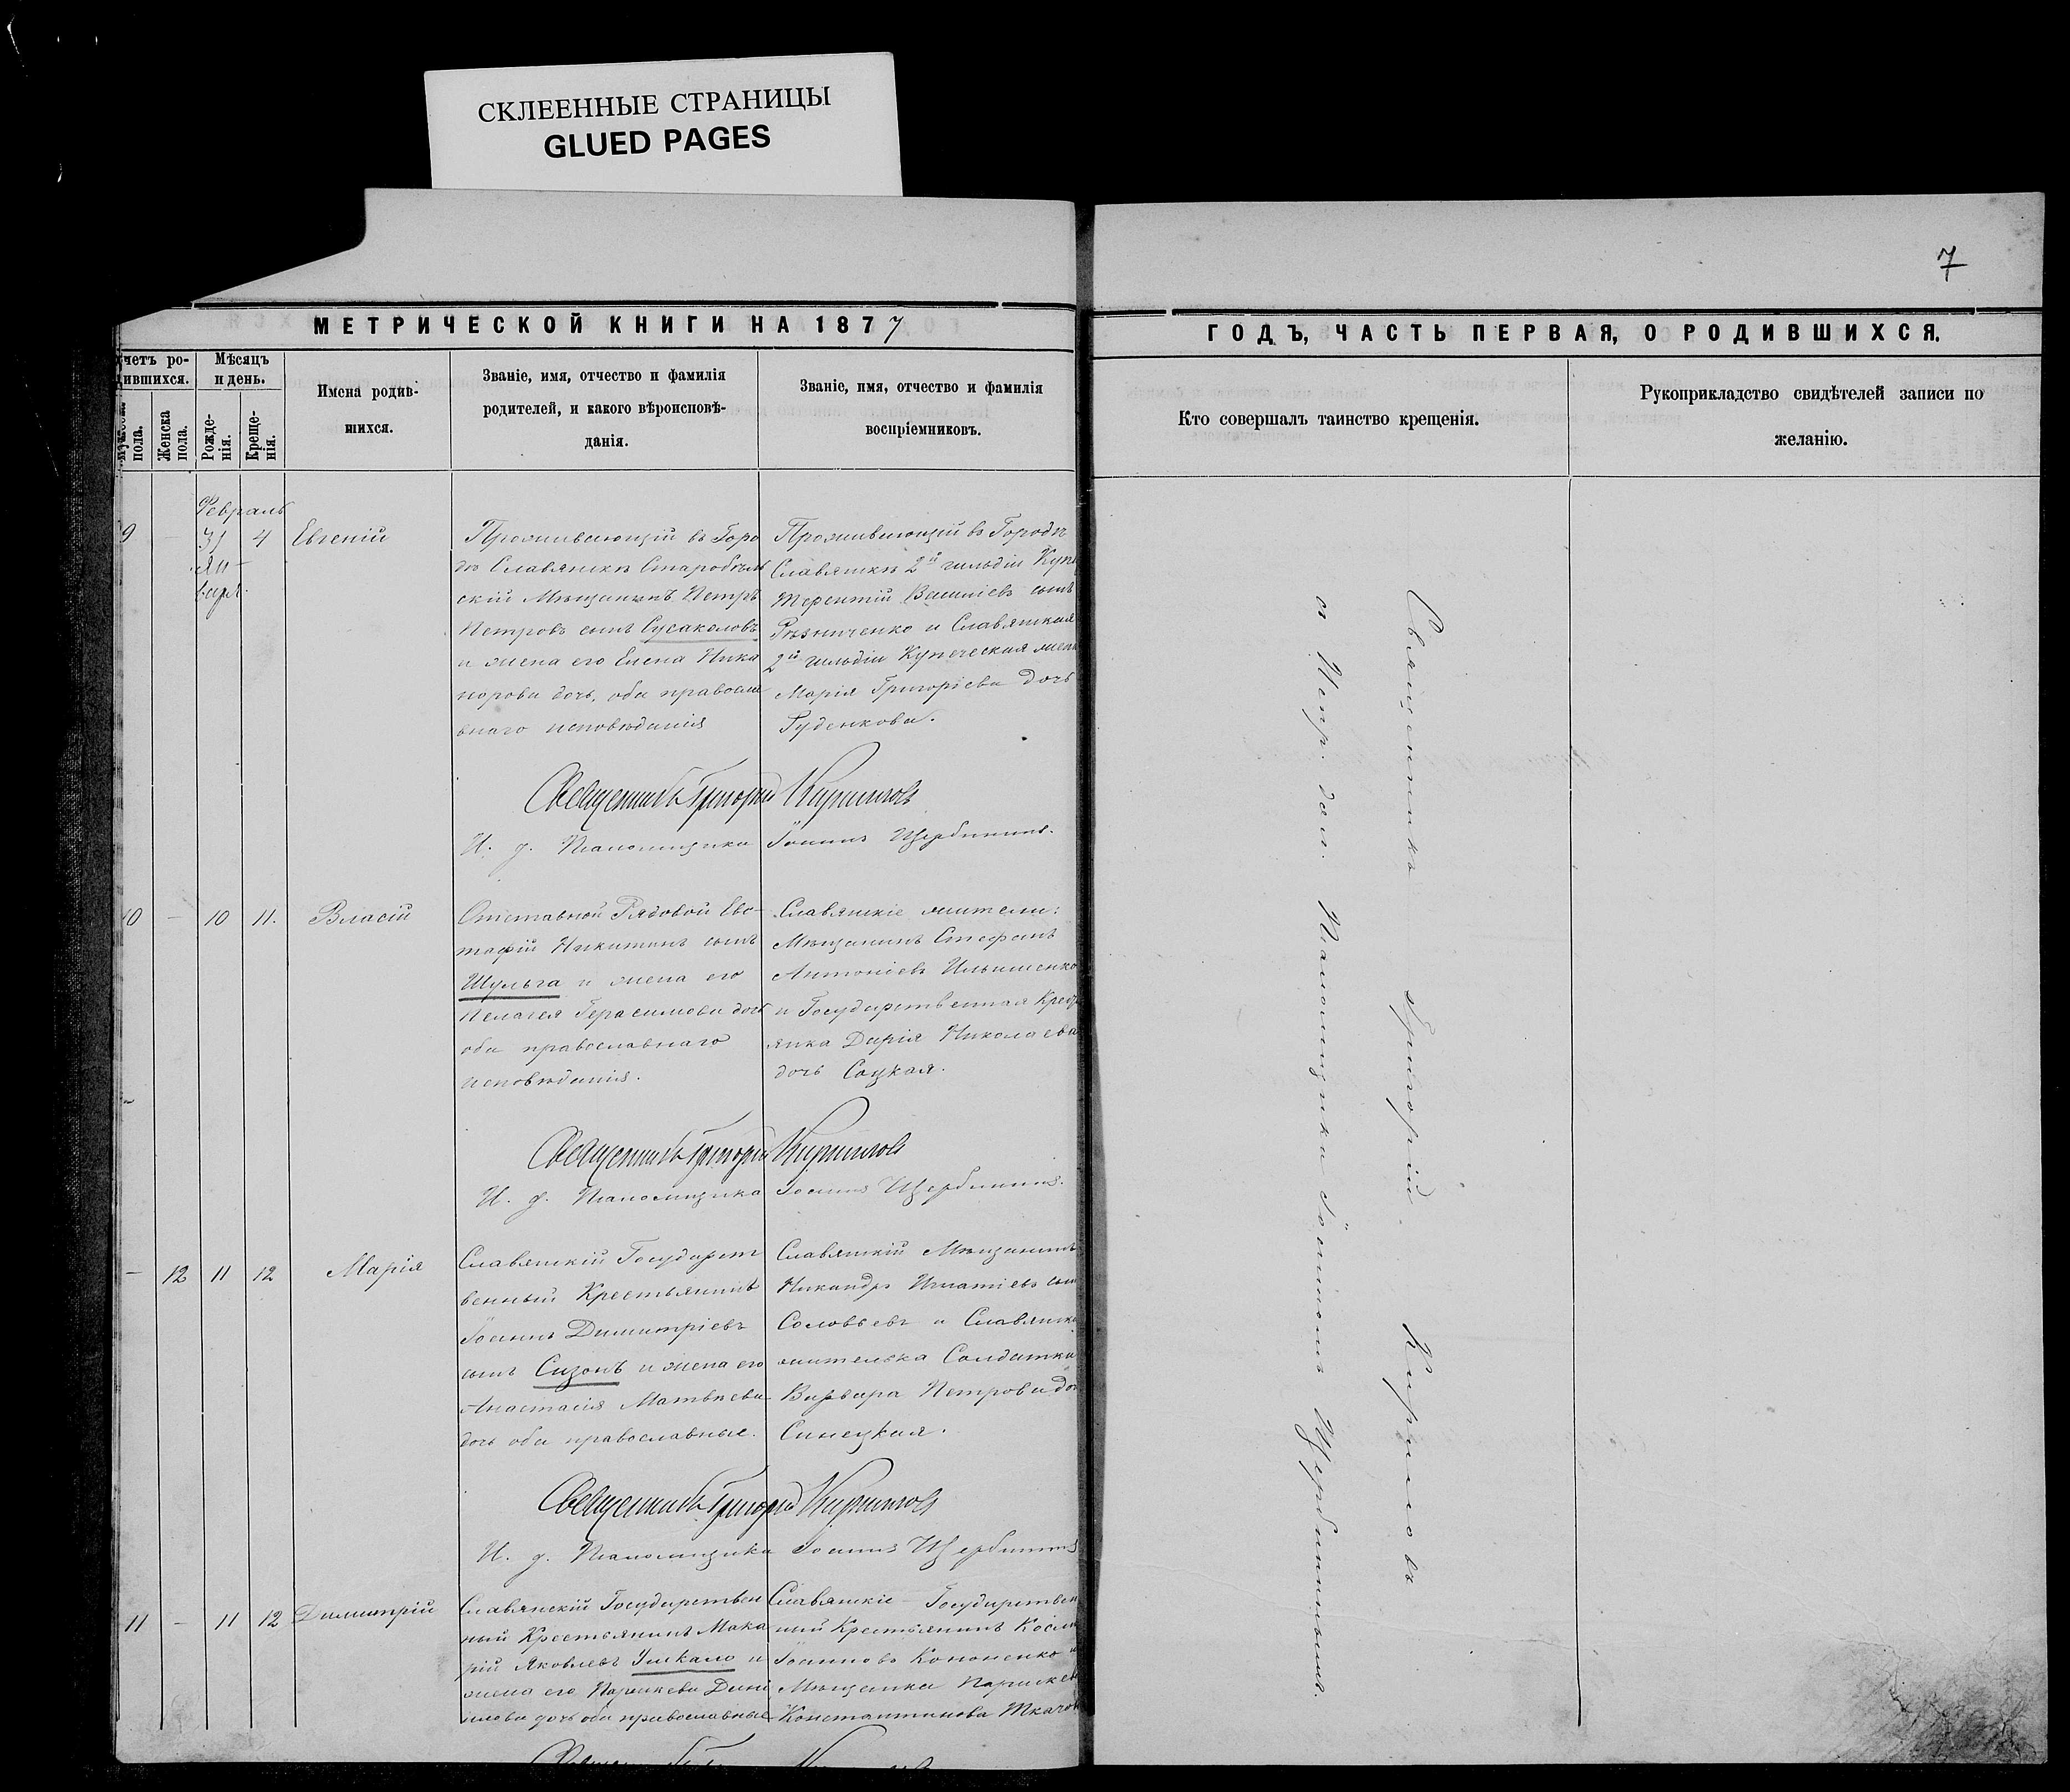 СКЛЕЕННЫЕ СТРАНИЦЫ
GLUED PAGES
7
МЕТРИЧЕСКОЙ КНИГИ НА 1877
ГОДЪ, ЧАСТЬ ПЕРВАЯ, О РОДИВШИХСЯ.
четъ ро-
дившихся.
пола.
Женска
пола.
Мѣсяцъ
и день.
Рожде-
нія.
Креще-
нія.
Имена родив-
шихся.
Званіе, имя, отчество и фамилія
родителей, и какого вѣроисповѣ-
данія.
Званіе, имя, отчество и фамилія
воспріемниковъ.
Кто совершалъ таинство крещенія.
Рукоприкладство свидѣтелей записи по
желанію.
Февраль
9 — 31 4 Евгеній
Ян-
варя.
Проживающій въ Горо
дѣ Славянскѣ Старобѣль
скій Мѣщанинъ Петръ
Петровъ сынъ Сусаколовъ
и жена его Елена Ника
норова дочь, оба правосла
внаго исповѣданія
Проживающій въ Городѣ
Славянскѣ 2й гильдіи Куп
Терентій Васильевъ сынъ
Рѣзниченко и Славянская
2й гильдіи Купеческая жен
Марія Григоріева дочь
Гуденкова.
Священникъ Григорій Кириловъ
И. д. Псаломщика Іоаннъ Щербининъ.
10 — 10 11. Власій
Отставной Рядовой Евс-
тафій Никитинъ сынъ
Шульга и жена его
Пелагея Герасимова дочь
оба православнаго
исповѣданія.
Славянскіе жители:
Мѣщанинъ Стефанъ
Антоніевъ Ильяшенко
и Государственная Крест
янка Дарія Николаева
дочь Соцкая.
Священникъ Григорій Кириловъ
И. д. Псаломщика Іоаннъ Щербининъ.
— 12 11 12 Марія
Славянскій Государст
венный Крестьянинъ
Іоаннъ Димитріевъ
сынъ Сизонъ и жена его
Анастасія Матвѣева
дочь оба православные.
Славянскій Мѣщанинъ
Никандръ Игнатіевъ сын
Соловьевъ и Славянск
жителька Солдатка
Варвара Петрова доч
Синецкая.
Священникъ Григорій Кириловъ
И. д. Псаломщика Іоаннъ Щербининъ
11 — 11 12 Димитрій
Славянскій Государствен
ный Крестьянинъ Мака
рій Яковлевъ и
жена его Параскева Дани
лова дочь оба православные
Славянскіе Государствен
ный Крестьянинъ Косма
Іоанновъ Кононенко и
Мѣщанка Параскев
Константинова Ткачев
Священникъ Григорій Кириловъ
съ Испр. дол. Псаломщика Іоанномъ Щербининымъ.